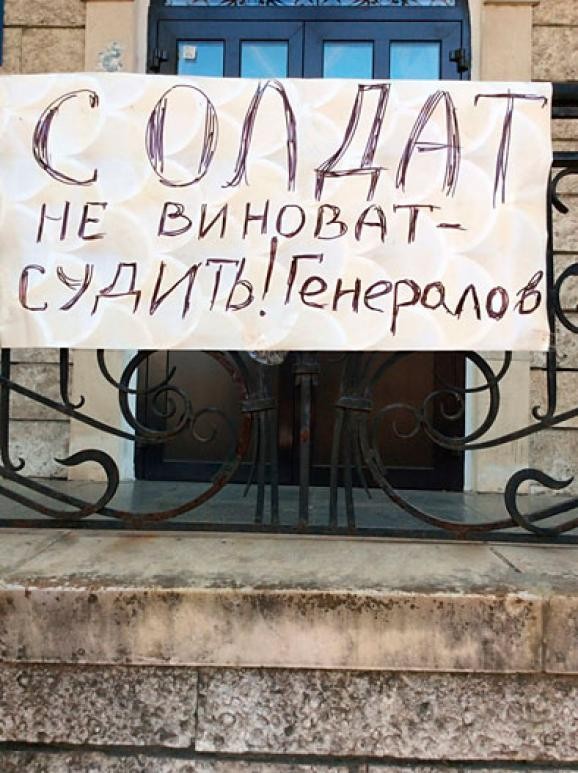 СОЛДАТ
НЕ ВИНОВАТ-
СУДИТЬ! Генералов